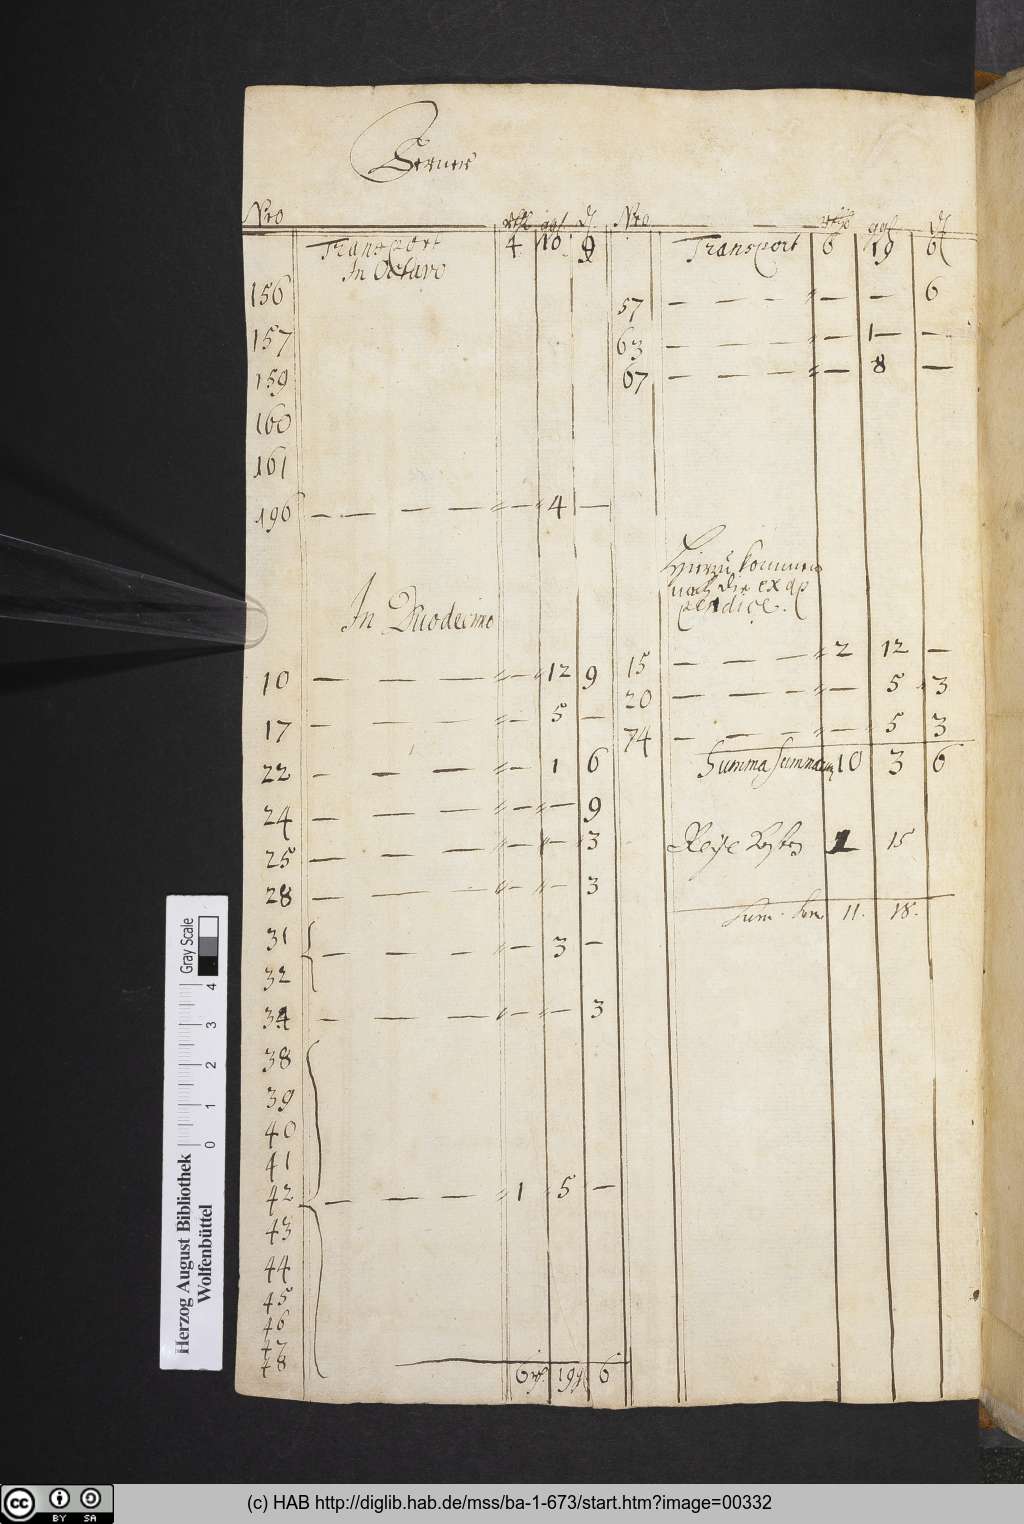 Ferner
Nro rthl ggl ₰
Transport 4 10 9
In Octavo
156
157
159
160
161
196 — — — — — 4 —
In Duodecimo
10 — — — — 12 9
17 — — — — 5 —
22 — — — — 1 6
24 — — — — — 9
25 — — — — — 3
28 — — — — — 3
31
— — — — 3 —
32
34 — — — — — 3
38
39
40
41
42 — — — 1 5 —
43
44
45
46
47
48
6 19 6
Nro rthl ggl ₰
Transport 6 19 6
57 — — — — — 6
63 — — — — 1 —
67 — — — — 8 —
Hierzu kommen
noch die ex ap
pendice.
15 — — — 2 12 —
20 — — — — 5 3
74 — — — — 5 3
Summa Summarum 10 3 6
Reise Kosten 1 15
Sum. Sum. 11. 18.
Gray Scale
0 1 2 3 4
Herzog August Bibliothek
Wolfenbüttel
cc BY SA
(c) HAB http://diglib.hab.de/mss/ba-1-673/start.htm?image=00332